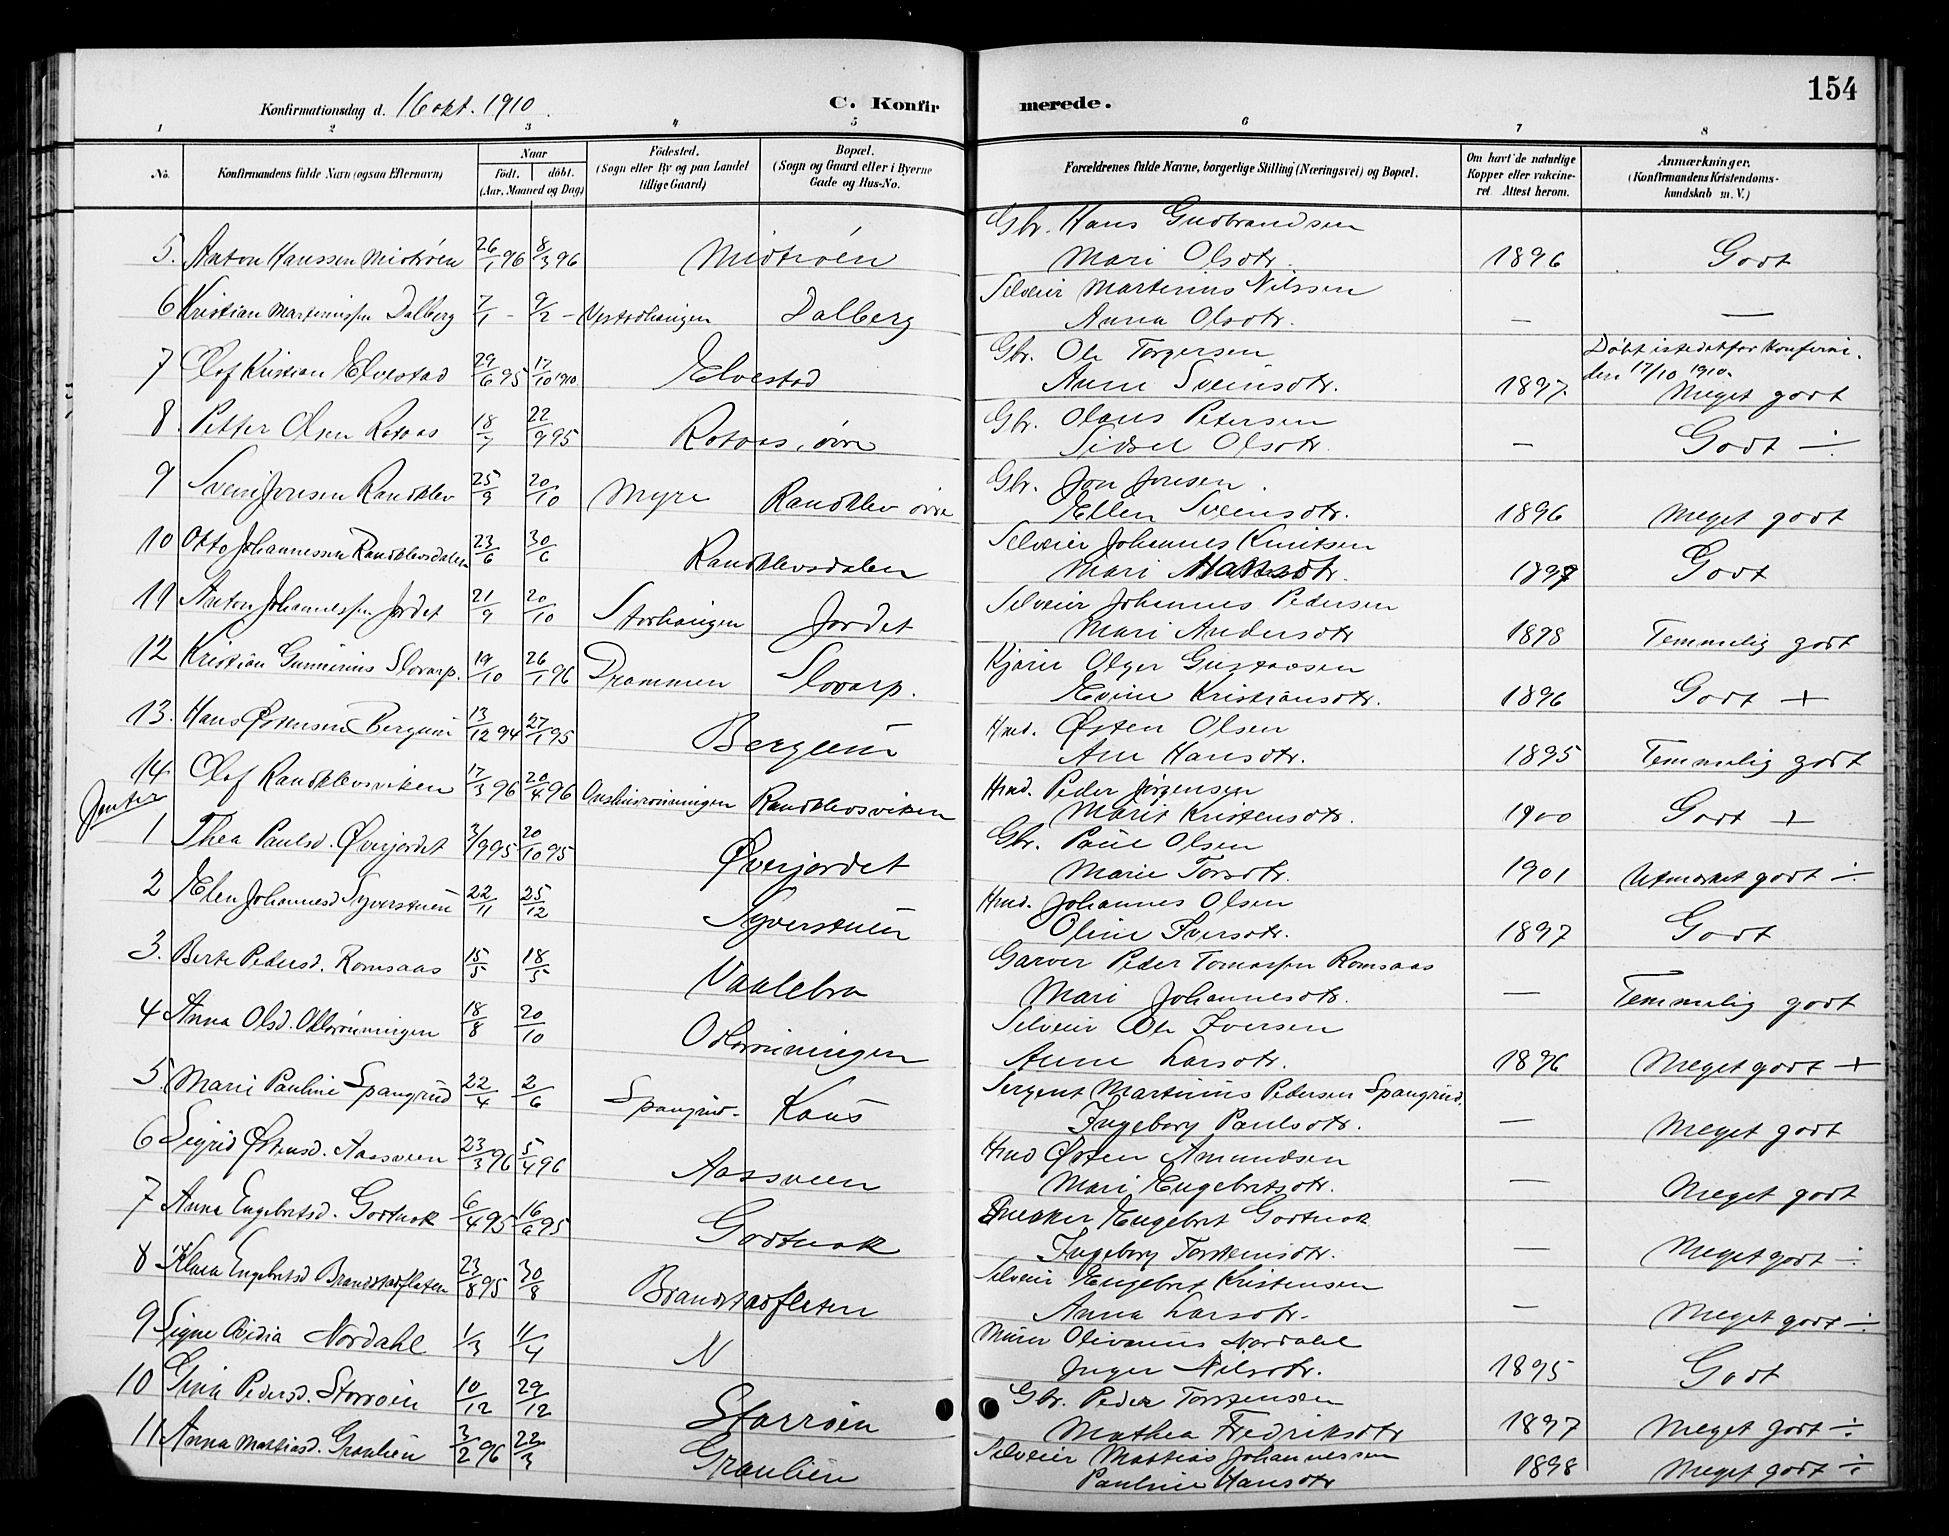 154
Konfirmationsdag d. 16 okt. 1910.
C. Konfirmerede.
1 2 3 4 5 6 7 8
No.
Konfirmandens fulde Navn (ogsaa Efternavn)
Naar
født. døbt.
(Aar, Maaned og Dag)
Fødested.
(Sogn eller By og paa Landet
tillige Gaard)
Bopæl.
(Sogn og Gaard eller i Byerne
Gade og Hus-No.
Forældrenes fulde Navne, borgerlige Stilling (Næringsvei) og Bopæl.
Om havt de naturlige
Kopper eller vakcine-
ret. Attest herom.
Anmærkninger.
(Konfirmandens Kristendoms-
kundskab m. V.)
Gbr. Hans Gudbrandsen
5. Anton Hanssen Midtrøen 26/1 96 8/3 96 Midtrøen Mari Olsdtr. 1896 Godt
Selveier Martinius Nilssen
6 Kristian Martinnissen Dalberg 7/1 - 9/2 - Dalberg Anna Olsdtr. — —
Gbr. Ole Torgersen Døbt istedetfor Konfirm.
7 Olof Kristian Elvestad 29/6 95 17/10 1910 Elvestad Anne Svensdtr. 1897. den 17/10 1910. Meget godt
Gbr. Olaus Petersen
8. Petter Olsen Rotaas 18/7 22/9 95 Rotaas, øvre Sidsel Olsdtr. — Godt ÷
Gbr. Jon Jonsen.
9 Svein Jonsen Randklev 25/9 20/10 Myre Randklev øvre Ellen Svensdtr. 1896 Meget godt
Selveier Johannes Knutsen
10 Otto Johannessen Randklevsdalen 23/6 30/6 Randklevsdalen Mari Hansdtr. 1897 Godt
Selveier Johannes Pedersen
11 Anton Johannessen Jordet 21/9 20/10 Storhaugen Jordet Mari Andersdtr 1898 Temmelig godt
Kjører Olger Gustavsen
12 Kristian Gunnerius Slovarp. 19/10 26/1 96 Drammen Slovarp. Evine Kristiansdtr. 1896 Godt +
Hmd. Østen Olsen
13. Hans Østensen Bergum 13/12 94 27/1 95 Bergum Ane Hansdtr. 1895 Temmelig godt
Hmd. Peder Jørgensen
14 Olof Randklevsviken 17/3 96 20/4 96 Randklevsviken Marit Kristensdtr. 1900 Godt +
Jenter
Gbr. Paul Olsen
1 Thea Paulsd. Øverjordet 3/9 95 20/10 95 Øverjordet Marie Torsdtr. 1901 Utmærket godt ÷
Hmd. Johannes Olsen
2 Elen Johannesd Syverstuen 22/11 25/12 Syverstuen Oline Iversdtr. 1897 Godt
Garver Peder Tomassen Romsaas
3. Berte Pedersd. Romsaas 15/5 18/5 Vaalebru Mari Johannesdtr. — Temmelig godt
Selveier Ole Iversen
4 Anna Olsd. Odlrønningen 18/8 20/10 Odlrønningen Anne Larsdtr. 1896 Meget godt +
Sergent Martinius Pedersen Spangrud.
5. Marie Pauline Spangrud 22/4 2/6 Spangrud. Kaus Ingeborg Paulsdtr. — Meget godt
Hmd Østen Amundsen
6 Sigrid Østensd. Aassveen 23/3 96 5/4 96 Aassveen Mari Engebretsdtr. — Meget godt
Snedker Engebret Godtnok
7 Anna Engebretsd. Godtnok 6/4 95 16/6 95 Godtnok Ingeborg Torstensdtr. — Meget godt ÷
Selveier Engebret Kristensen
8 Klara Engebretsd Brandstadflaten 23/8 95 30/8 Brandstadflaten Anna Larsdtr. — Meget godt ÷
Murer Olivanus Nordahl
9 Signe Ovidia Nordahl 1/3 11/4 N Inger Nilsdtr. 1895 Godt
Gbr. Peder Torstensen
10 Gina Pedersd. Storrøen 10/12 29/12 Storrøen Mathea Fredriksdtr 1897 Meget godt ÷
Selveier Mattias Johannessen
11 Anna Mattiasd. Graulien 3/2 96 22/3 Graulien Pauline Hansdtr 1898 Meget godt ÷